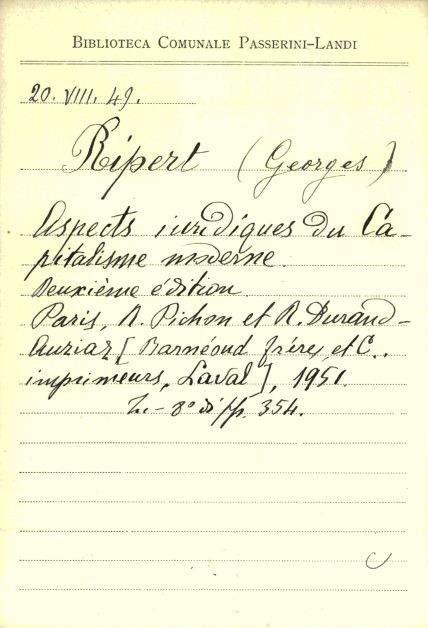 BIBLIOTECA COMUNALE PASSERINI-LANDI
20. VIII. 49.
Ripert (Georges)
Aspects iuridiques du Ca-
pitalisme moderne.
Deuxième édition.
Paris, R. Pichon et R. Durand-
Auziaz [Barnéoud frères et C.,
imprimeurs, Laval], 1951.
In-8° di pp. 354.
C